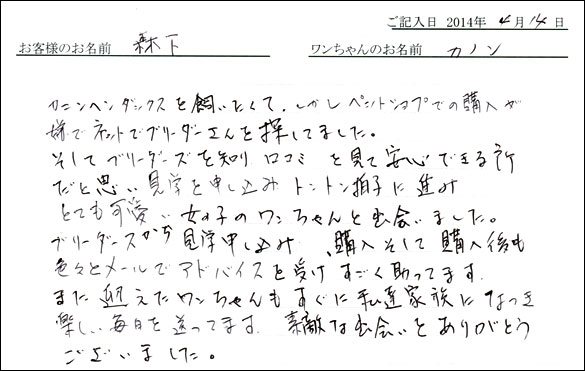 ご記入日 2014年 4月 14日
お客様のお名前 森下 ワンちゃんのお名前 カノン
カニンヘンダックスを飼いたくて、しかしペットショップでの購入が
嫌でネットでブリーダーさんを探してました。
そしてブリーダーズを知り 口コミ を見て安心できる所
だと思い 見学を申し込み トントン拍子に進み
とても可愛い女の子のワンちゃんと出会いました。
ブリーダーズから見学申し込み、購入そして購入後も
色々とメールでアドバイスを受けすごく助ってます。
また迎えたワンちゃんもすぐに私達家族になつき
楽しい毎日を送ってます。素敵な出会いをありがとう
ございました。